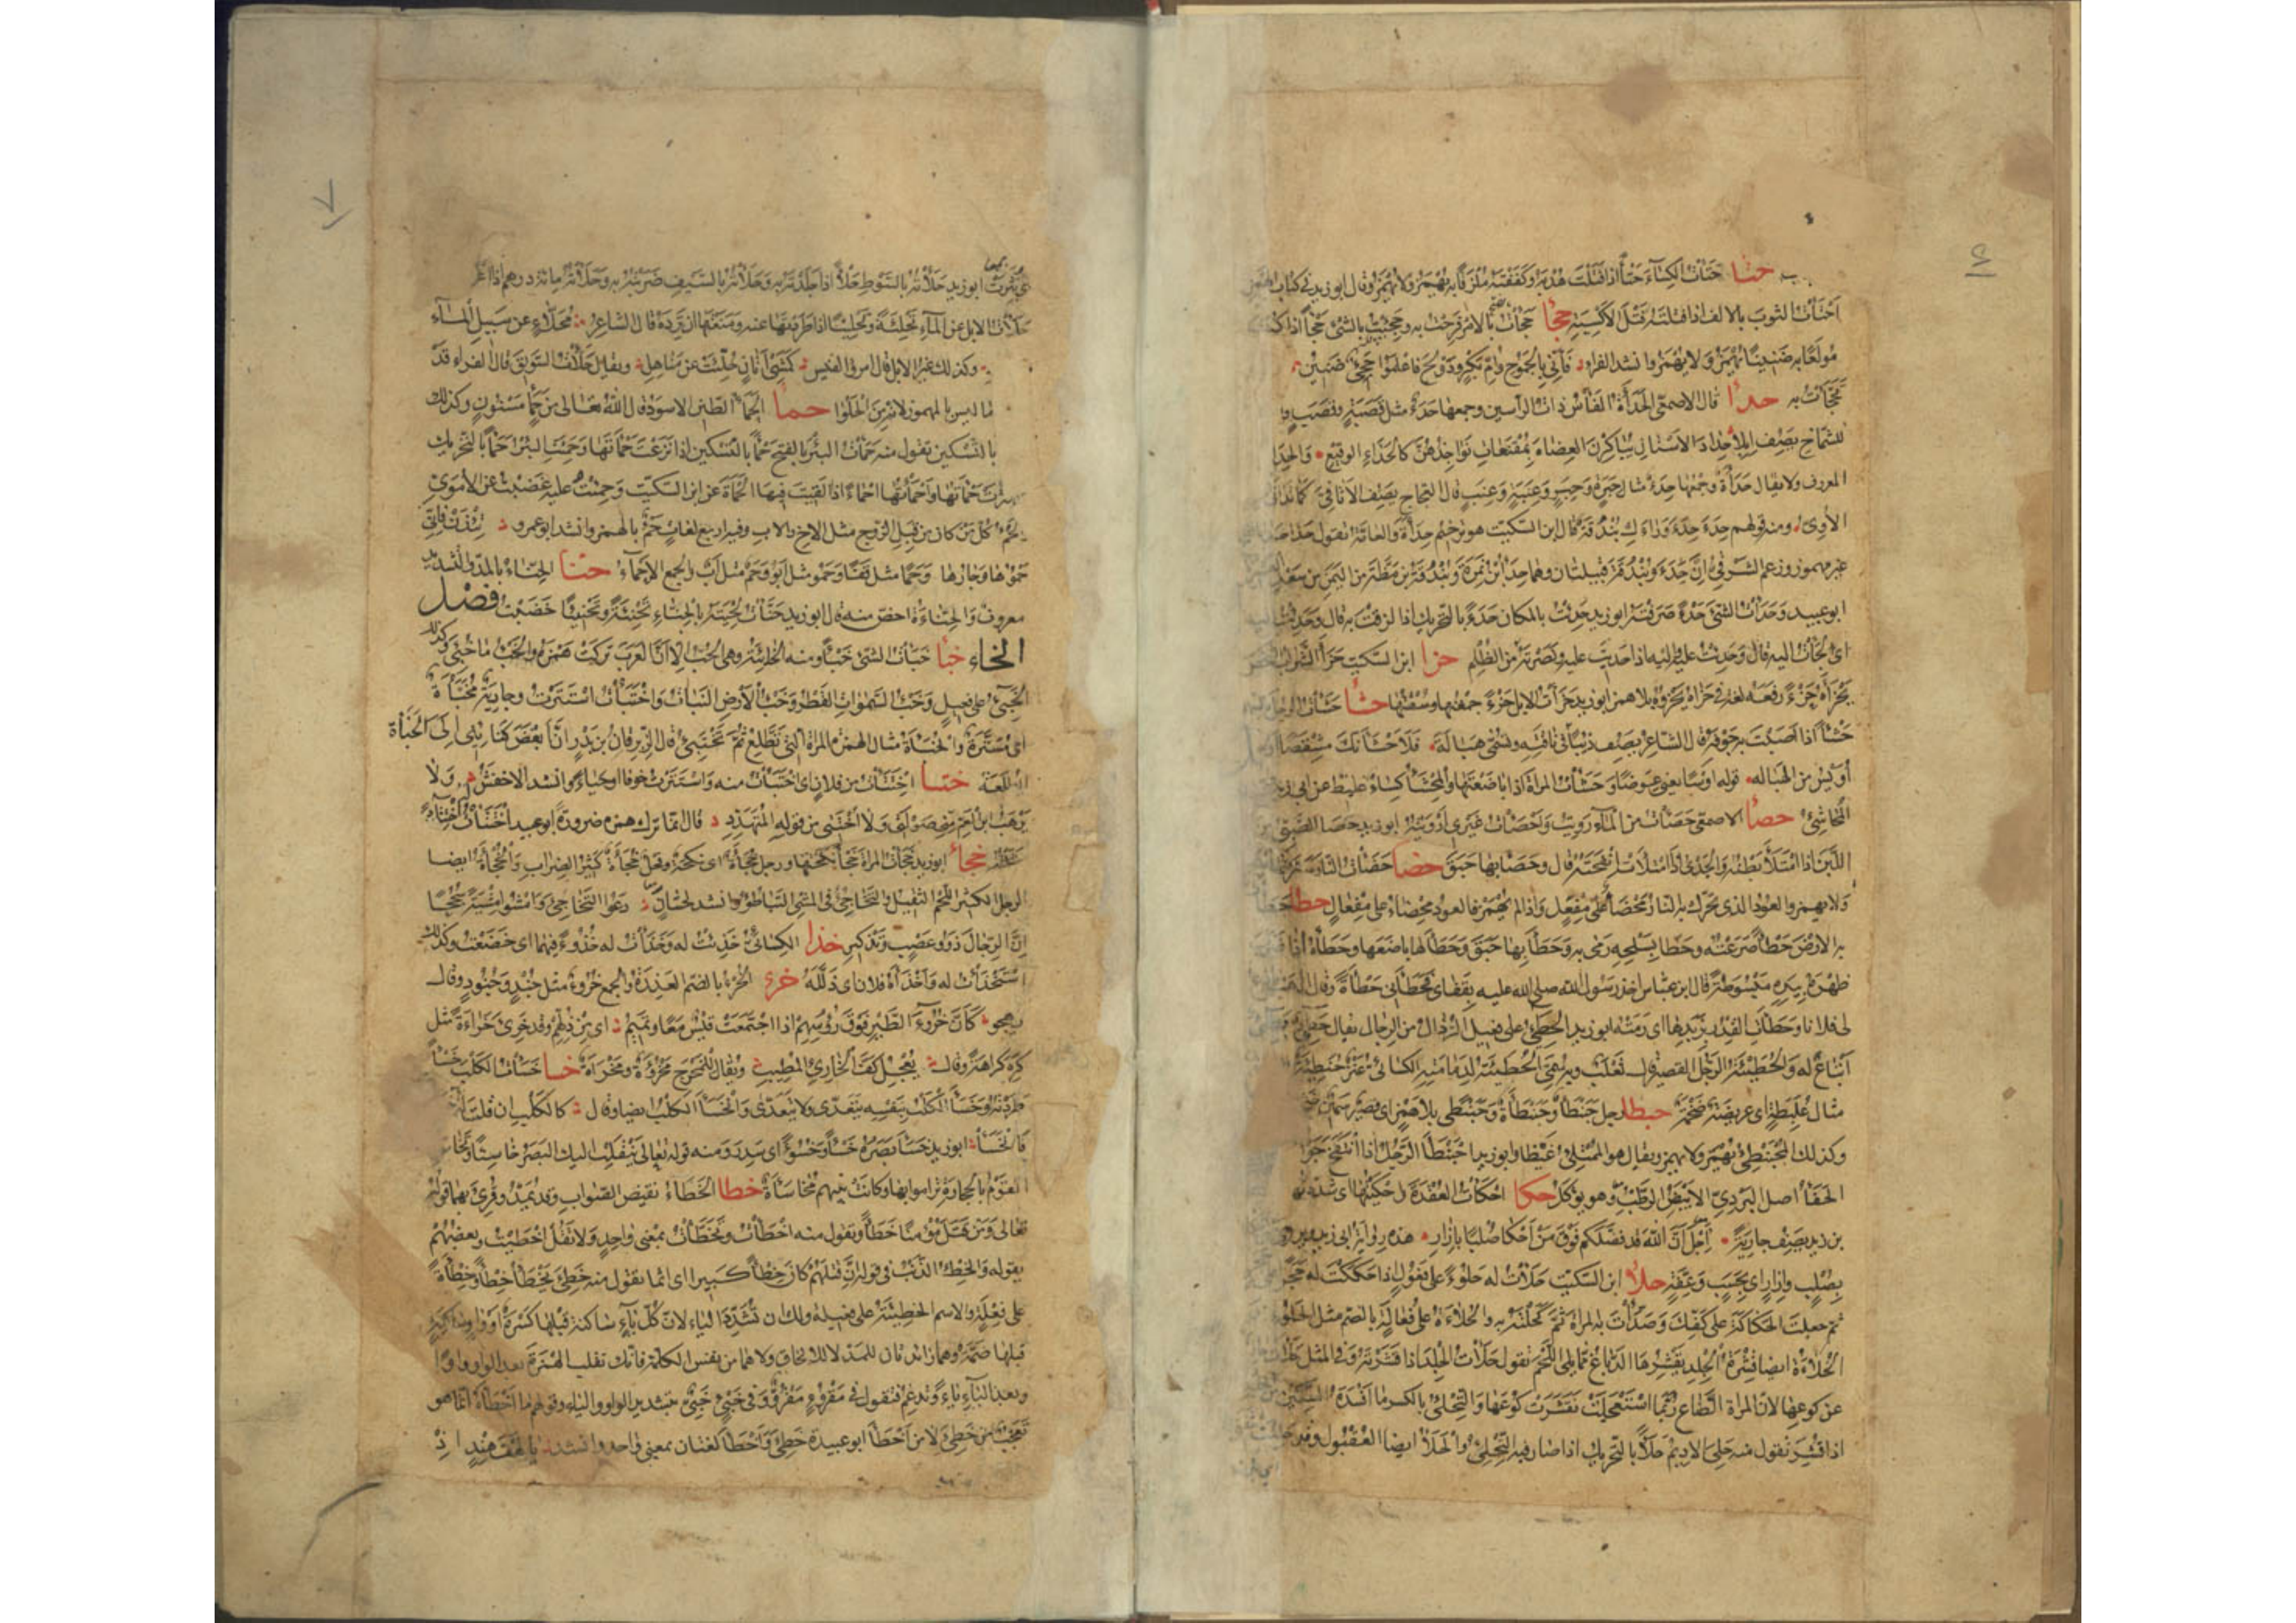 حتا حتأت الكساء حتأ اذا فتلت هدبه وكففته ملزقا به يهمز ولا يهمز وقال ابو زيد فى كتاب الهمز
احتأت الثوب بالالف اذا فتلته فتل الاكسية حجأ حجأت بالامر فرحت به وحجئت بالشئ حجأ اذا كنت
مولعا به ضنينا يهمز ولا يهمز وانشد الفراء فانى بالجموح وام بكر ودولح فاعلموا حجئ ضنين
تحجأت به حدأ قال الاصمعى الحدأة الفأس ذات الرأسين وجمعها حدأ مثل قصبة وقصب و
للشماخ يصف ابلا حداد الاسنان يباكرن العضاه بمقنعات نواجذهن كالحداء الوقيع والحدا
المعروف ولا يقال حدأة وجمعها حدء مثال حبرة وحبر وعنبة وعنب قال العجاج يصف الاثافى كما تدانى
الاوى ومنه قولهم حدء حدء وراءك بندقة قال ابن السكيت هو ترخيم حدأة والعامة تقول حدا حدا
غير مهموز وزعم الشرقى ان حدء وبندقة قبيلتان وهما حدأ ابن نمرة وبندقة بن مظة من اليمن بن سعد
ابو عبيد وحدأت الشئ حدء صرفته ابو زيد حدئت بالمكان حدء بالتحريك اذا لزقت به قال وحدئت اليه
اى لجأت اليه قال وحدئت عليه واليه اذا حدبت عليه ونصرته من الظلم حزا ابن السكيت حزأ السراب الشخص
يحزأه حزء رفعه لغة فى حزاه يحزوه بلا همز ابو زيد حزأت الابل حزء جمعتها وسقتها حشأ حشأت الرجل بالسهم
حشأ اذا اصبت به جوفه قال الشاعر يصف ذئبا فى ناقته وتسمى هبالة فلاحشأنك مشقصا
اويس من الهباله قوله اوسا يعنى عوضا وحشأت المرأة اذا باضعتها والمحشأ كساء غليظ عن ابى زيد
المحاشئ حصأ الاصمعى حصأت من الماء رويت واحصأت غيرى ارويته ابو زيد حصأ الصبى من
اللبن اذا امتلأ بطنه والجدى اذا امتلأت انفحته قال وحصأ بها حبق حضا حضأت النار سعرتها
ولا يهمز والعود الذى تحرك به النار محضأ على مفعل واذا لم يهمز فالعود محضاء على مفعال حطا حطأ
به الارض حطأ صرعته وحطأ بسلحه رمى به وحطأ بها حبق وحطأها باضعها وحطأه اذا ضرب
ظهره بيده مبسوطة قال ابن عباس اخذ رسول الله صلى الله عليه بقفاى فحطأنى حطأة وقال اذهب فادع
لى فلانا وحطأت القدر بزبدها اى رمته ابو زيد الحطئ على فعيل الرذال من الرجال يقال حطئ
اتباع له والحطيئة الرجل القصير قال ثعلب وبه سمى الحطيئة لدمامته الكسائى عنز حنطئة
مثال علبطة اى عريضة ضخمة حبطا رجل حبنطأ وحبنطأة وحبنطى بلا همز اى قصير سمين
وكذلك المحبنطئ يهمز ولا يهمز ويقال هو الممتلئ غيظا وابو زيد احبنطأ الرجل اذا انتفخ جوفه
الحفأ اصل البردى الابيض الرطب وهو يؤكل حكا احكأت العقدة احكيتها اى شددتها
بن زيد يصف جارية اجل ان الله قد فضلكم فوق من احكأ صلبا بازار هذه رواية ابى زيد
بصلب وازار اى بحسب وعفة حلأ ابن السكيت حلأت له حلوء على فعول اذا حككت له حجرا
ثم جعلت الحكاكة على كفك وصدأت به المرآة ثم كحلته به والحلاءة على فعالة بالضم مثل الحلوء
الحلاءة ايضا قشرة الجلد يقشرها الدباغ مما يلى اللحم تقول حلأت الجلد اذا قشرته وفى المثل حلأت
عن كوعها لان المرأة الصناع ربما استعجلت فقشرت كوعها والتحلئ بالكسر ما افسده السكين من
اذا قشر تقول منه حلئ الاديم حلأ بالتحريك اذا صار فيه التحلئ والحلأ ايضا العقبول وقد حلئت
اى بثرت ابو زيد حلأته بالسوط حلأ اذا جلدته به وحلأته بالسيف ضربته به وحلأته مائة درهم اذا
حلأت الابل عن الماء تحلئة وتحليئا اذا طردتها عنه ومنعتها ان ترده قال الشاعر محلاء عن سبيل الماء
وكذلك غير الابل قال امرؤ القيس كمشى اتان حلئت عن مناهل ويقال حلأت السويق قال الفراء قد
ما ليس بالمهموز لانه من الحلوا حمأ الحمأ الطين الاسود قال الله تعالى من حمأ مسنون وكذلك
بالتسكين تقول منه حمأت البئر بالفتح حمأ بالتسكين اذا نزعت حمأتها وحمئت البئر حمأ بالتحريك
كثرت حمأتها واحمأتها احماء اذا القيت فيها الحمأة عن ابن السكيت وحمئت عليه غضبت عن الاموى
الحمء كل من كان من قبل الزوج مثل الاخ والاب وفيه اربع لغات حمء بالهمز وانشد ابو عمرو تئذن فانى
حموها وجارها وحما مثل قفا وحمو مثل ابو وحم مثل اب والجمع الاحماء حنا الحناء بالمد والتشديد
معروف والحناءة اخص منه قال ابو زيد حنأت لحيته بالحناء تحنئة وتحنيئا خضبت فصل
الخاء خبأ خبأت الشئ خبأ ومنه الخابئة وهى الحب الا ان العرب تركت همزه والخبء ما خبئ وكذلك
الخبئ على فعيل وخبء السموات القطر وخبء الارض النبات واختبأت استترت وجارية مخبأة
اى مستترة والخبأة مثال الهمزة المرأة التى تطلع ثم تختبئ قال الزبرقان بن بدر ان ابغض كنائنى الى الخبأة
الطلعة ختا اختتأت من فلان اى اختبأت منه واستترت خوفا او حياء وانشد الاخفش ولا
يرهب ابن العم منى صولتى ولا اختتى من قوله المتهدد قال انما ترك همزه ضرورة ابو عبيد اختتأت اختتاء
خجأ ابو زيد خجأت المرأة خجأ نكحتها ورجل خجأة اى نكحة وفحل خجأة كثير الضراب والخجأة ايضا
الرجل الكثير اللحم الثقيل والتخاجئ فى المشى التباطؤ وانشد لحسان دعوا التخاجئ وامشوا مشية سجحا
ان الرجال ذوو عصب وتذكير خذا الكسائى خذئت له وخذأت له خذوء فيهما اى خضعت وكذلك
استخذأت له واخذأه فلان اى ذلله خرء الخرء بالضم العذرة والجمع خروء مثل جند وجنود وقال
يهجو كأن خروء الطير فوق رؤسهم اذا اجتمعت قيس معا وتميم اى من ذلهم وقد خرئ خراءة مثل
كره كراهة وقال يعجل كف الخارئ المطيب ويقال للمخرج مخرؤة ومخرأة خسا خسأت الكلب خسأ
طردته وخسأ الكلب بنفسه يتعدى ولا يتعدى وانخسأ الكلب ايضا وقال كالكلب ان قلت له
فانخسأ ابو زيد خسأ بصره خسأ وخسوء اى سدر ومنه قوله تعالى ينقلب اليك البصر خاسئا وتخاسأ
القوم بالحجارة تراموا بها وكانت بينهم مخاسأة خطا الخطاء نقيض الصواب وقد يمد وقرئ بهما قوله
تعالى ومن قتل مؤمنا خطأ وتقول منه اخطأت وتخطأت بمعنى واحد ولا تقل اخطيت وبعضهم
يقوله والخطء الذنب فى قوله ان قتلهم كان خطأ كبيرا اى اثما تقول منه خطئ يخطأ خطأ وخطأة
على فعلة والاسم الخطيئة على فعيلة ولك ان تشدد الياء لان كل ياء ساكنة قبلها كسرة او واو ساكنة
قبلها ضمة وهما زائدتان للمد لا للالحاق ولا هما من نفس الكلمة فانك تقلب الهمزة بعد الواو واوا
وبعد الياء ياء وتدغم فتقول فى مقروء مقرو وفى خبئ خبى بتشديد الواو والياء وقولهم ما اخطأه انما هو
تعجب من خطئ لا من اخطأ ابو عبيدة خطئ واخطأ لغتان بمعنى واحد وانشد يا لهف هند اذ